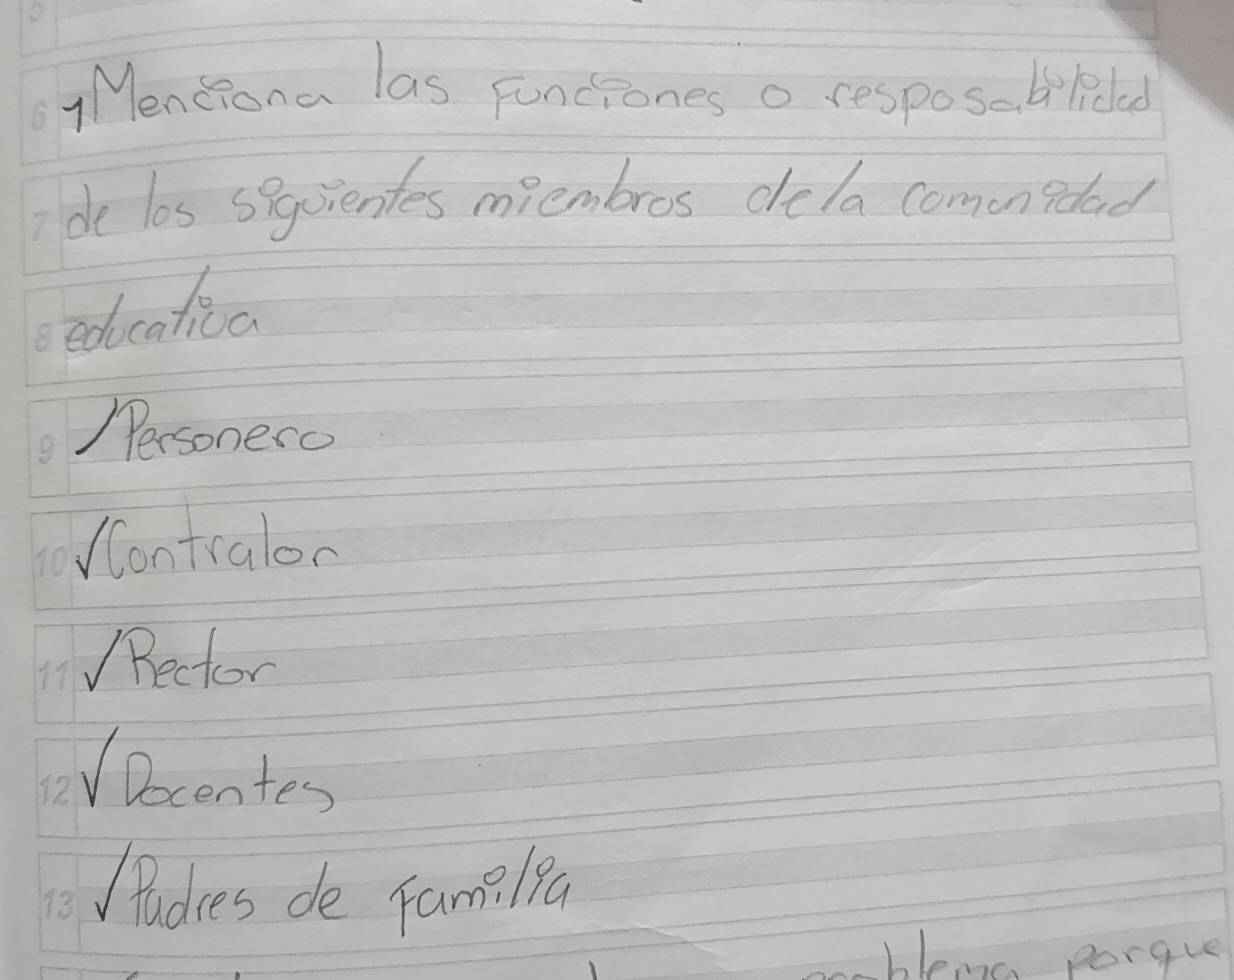 6 1 Menciona las Funciones o resposabilidad
7 de los siguientes miembros dela comunidad
8 educativa
9 √ Personero
10 √ Contralor
11 √ Rector
12 √ Docentes
13 √ Padres de Familia
porque